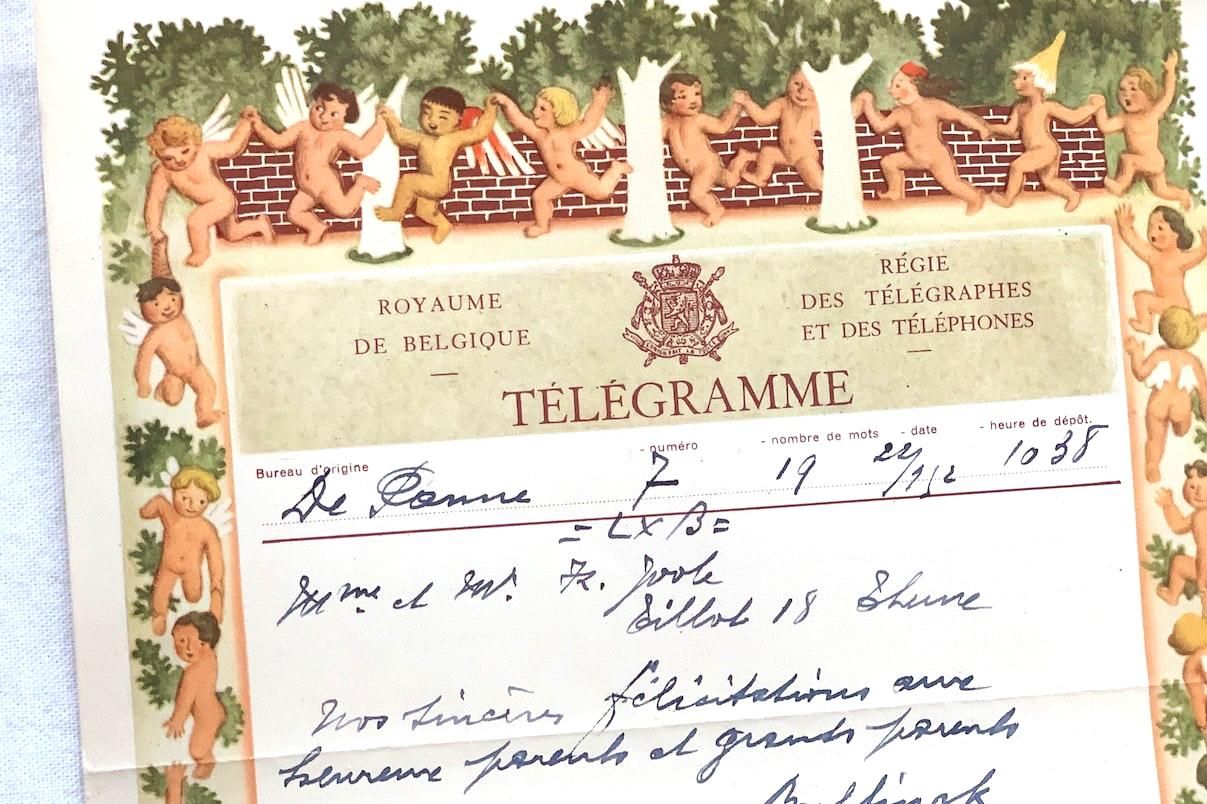 ROYAUME
DE BELGIQUE
RÉGIE
DES TÉLÉGRAPHES
ET DES TÉLÉPHONES
TÉLÉGRAMME
Bureau d'origine - numéro - nombre de mots - date - heure de dépôt.
De Panne 7 19 22/ 1038
= LXB =
Mme et Mr. Fr.
18
Nos sincères félicitations aux
heureux parents et grands parents